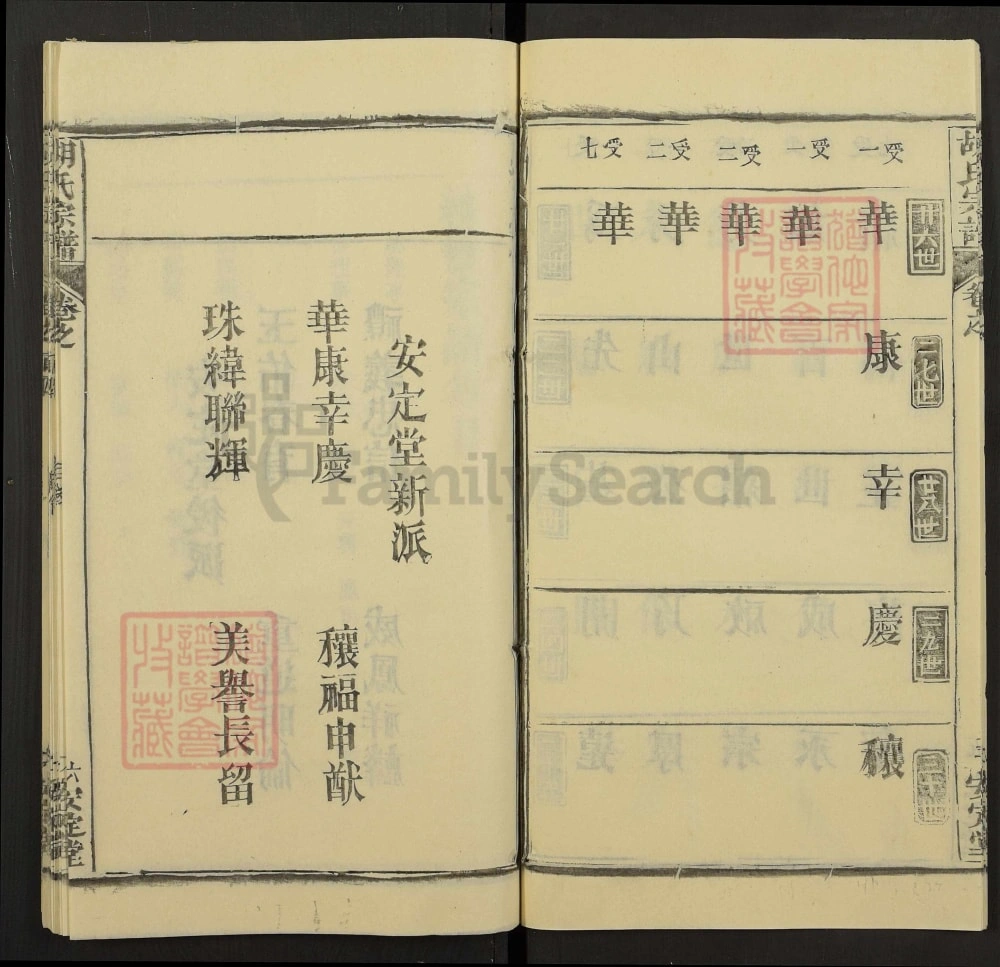 受一
受一
受二
受二
受七
廿六世
華
華
華
華
華
二七世
康
廿八世
幸
二九世
慶
三十世
穰
安定堂
安定堂新派
華康幸慶
穰福申猷
珠緯聯輝
美譽長留
胡氏宗譜
卷之
六安定堂
FamilySearch